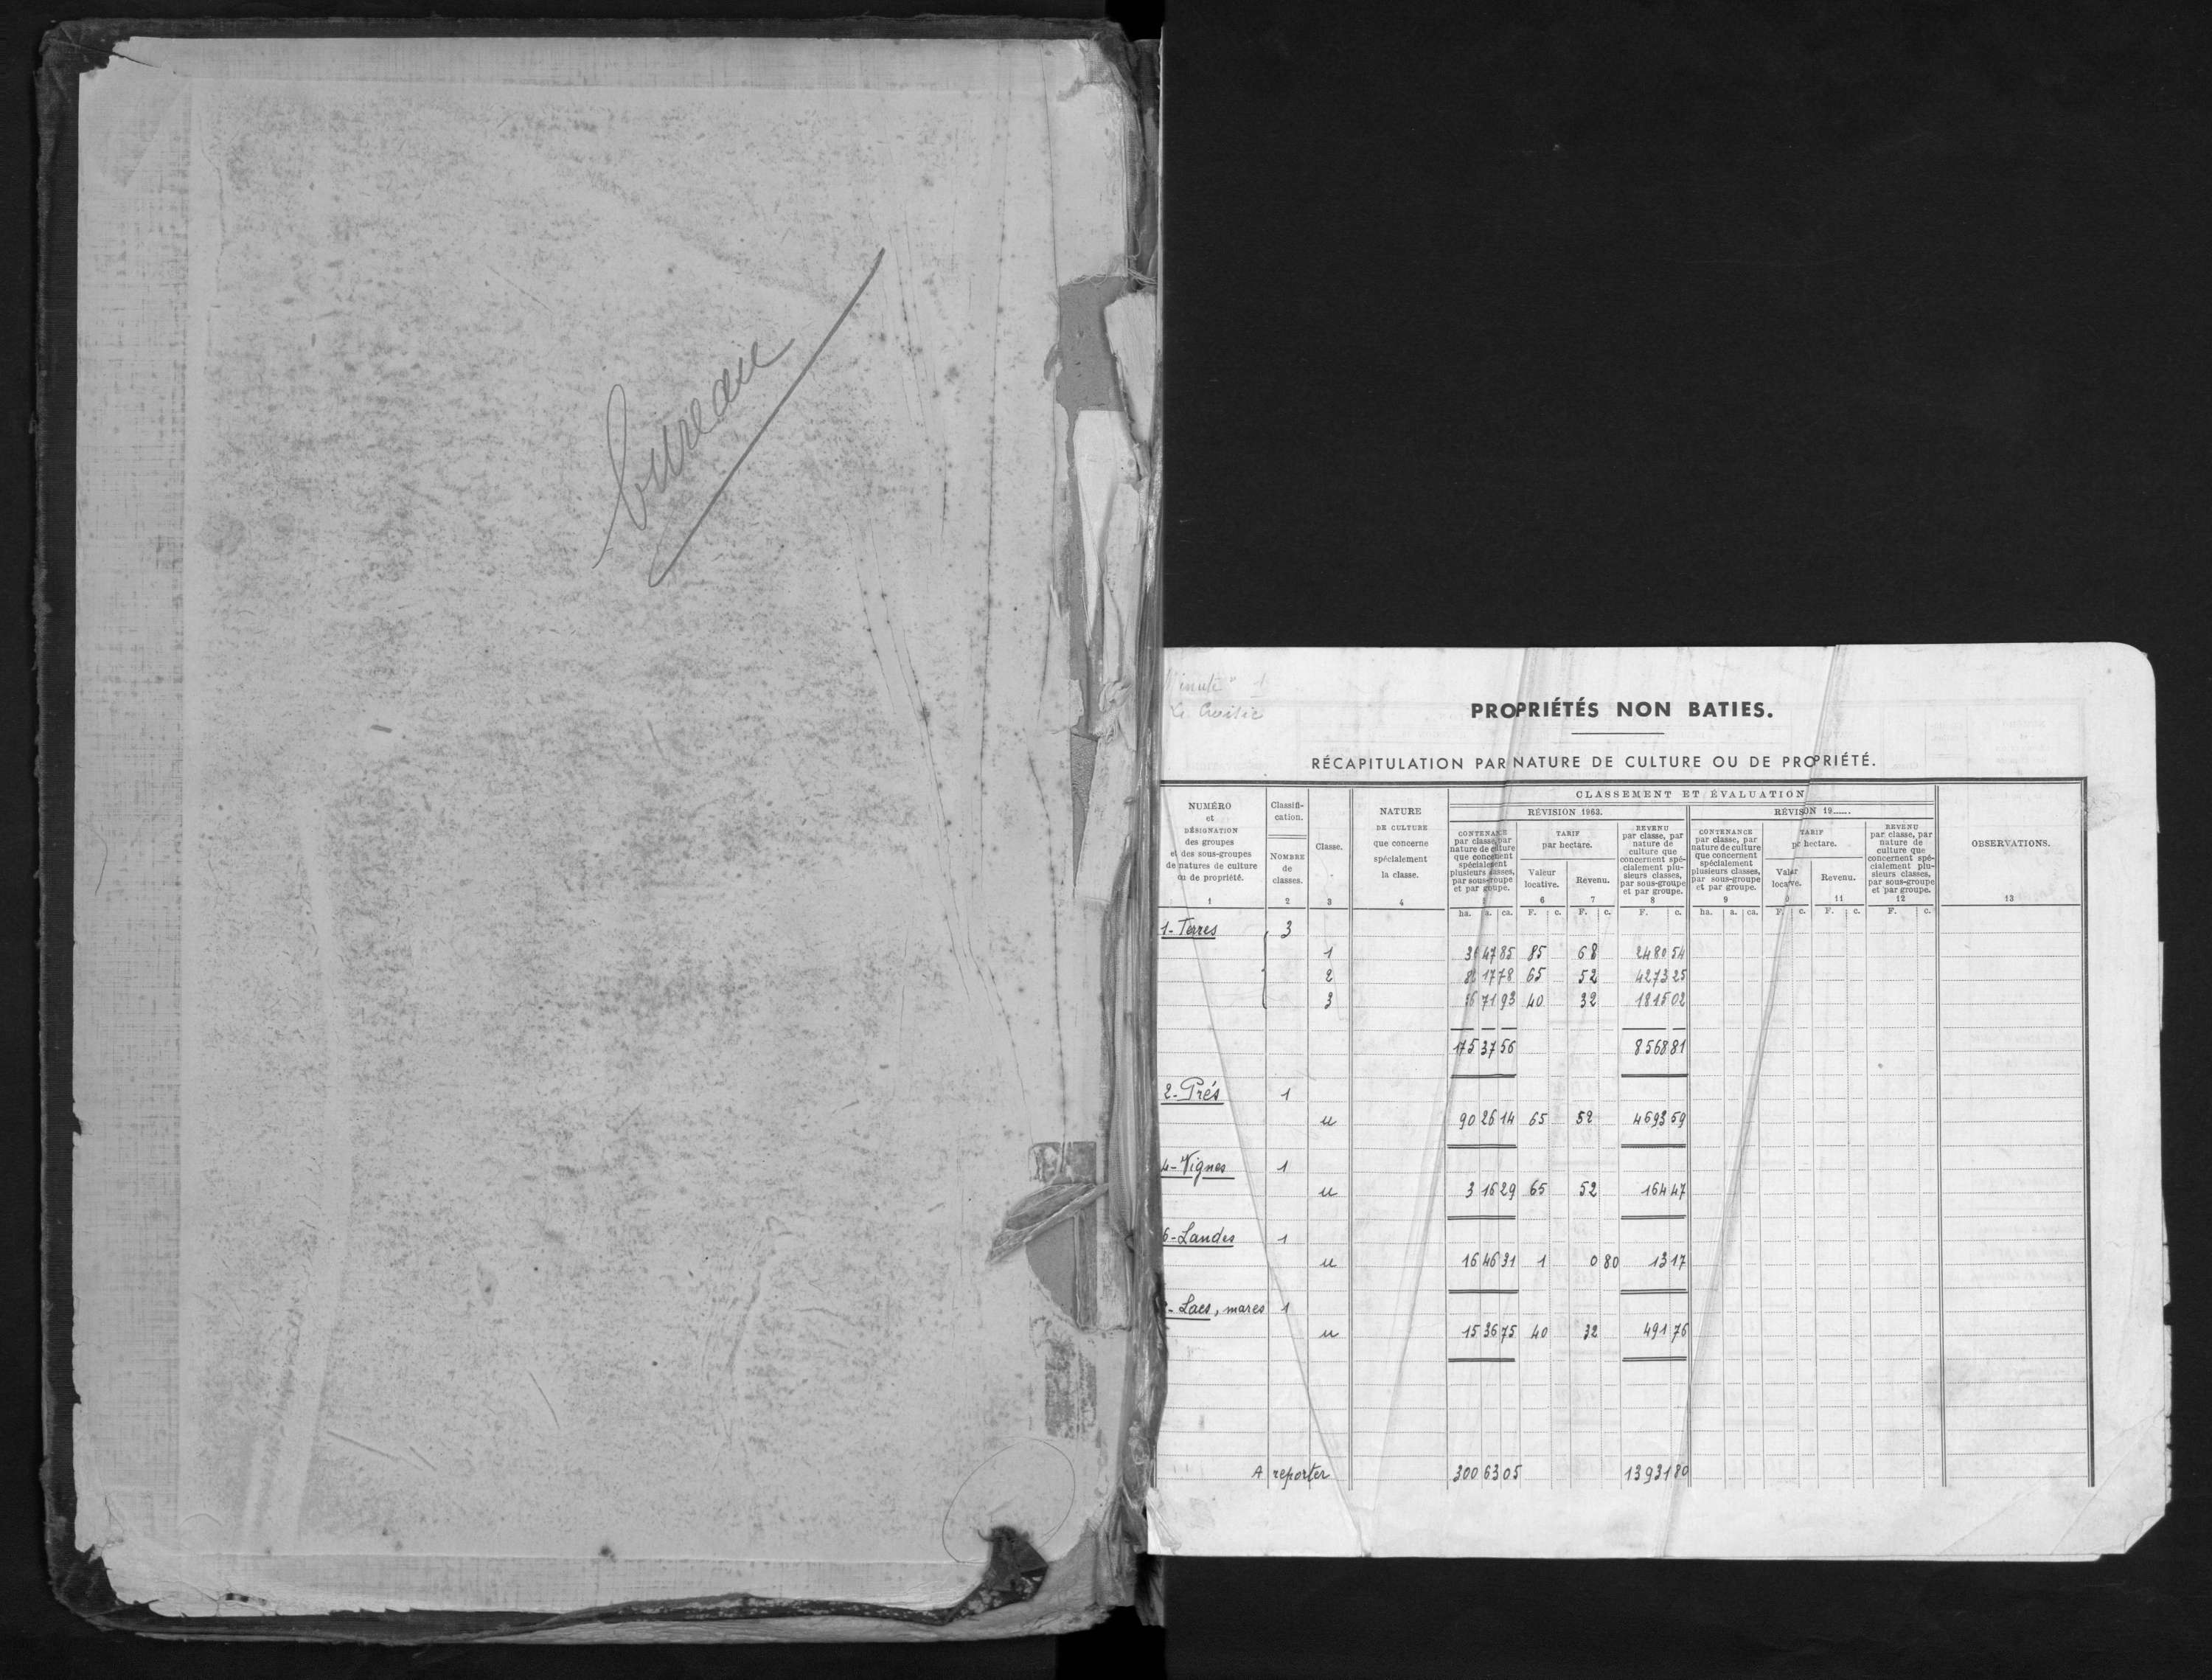 bureau
Le Croisic
PROPRIÉTÉS NON BATIES.
RÉCAPITULATION PAR NATURE DE CULTURE OU DE PROPRIÉTÉ.
NUMÉRO et DÉSIGNATION des groupes et des sous-groupes de natures de culture ou de propriété.
Classification.
NOMBRE de classes.
Classe.
NATURE DE CULTURE que concerne spécialement la classe.
CLASSEMENT ET ÉVALUATION
RÉVISION 1963.
CONTENANCE par classe, par nature de culture que concernent spécialement plusieurs classes, par sous-groupe et par groupe.
TARIF par hectare.
Valeur locative.
Revenu.
REVENU par classe, par nature de culture que concernent spécialement plusieurs classes, par sous-groupe et par groupe.
RÉVISON 19......
CONTENANCE par classe, par nature de culture que concernent spécialement plusieurs classes, par sous-groupe et par groupe.
TARIF par hectare.
Valeur locative.
Revenu.
REVENU par classe, par nature de culture que concernent spécialement plusieurs classes, par sous-groupe et par groupe.
OBSERVATIONS.
1 2 3 4 6 7 8 9 11 12 13
ha. a. ca. F. c. F. c. F. c. ha. a. ca. F. c. F. c. F. c.
1- Terres 3
1 47 85 85 68 2480 54
2 17 78 65 52 4273 25
3 71 93 40 32 1815 02
175 37 56 8568 81
2- Prés 1
u 90 26 14 65 52 4693 59
4- Vignes 1
u 3 16 29 65 52 164 47
6- Landes 1
u 16 46 31 1 0 80 13 17
- Lacs, mares 1
u 15 36 75 40 32 491 76
A reporter 300 63 05 13931 80